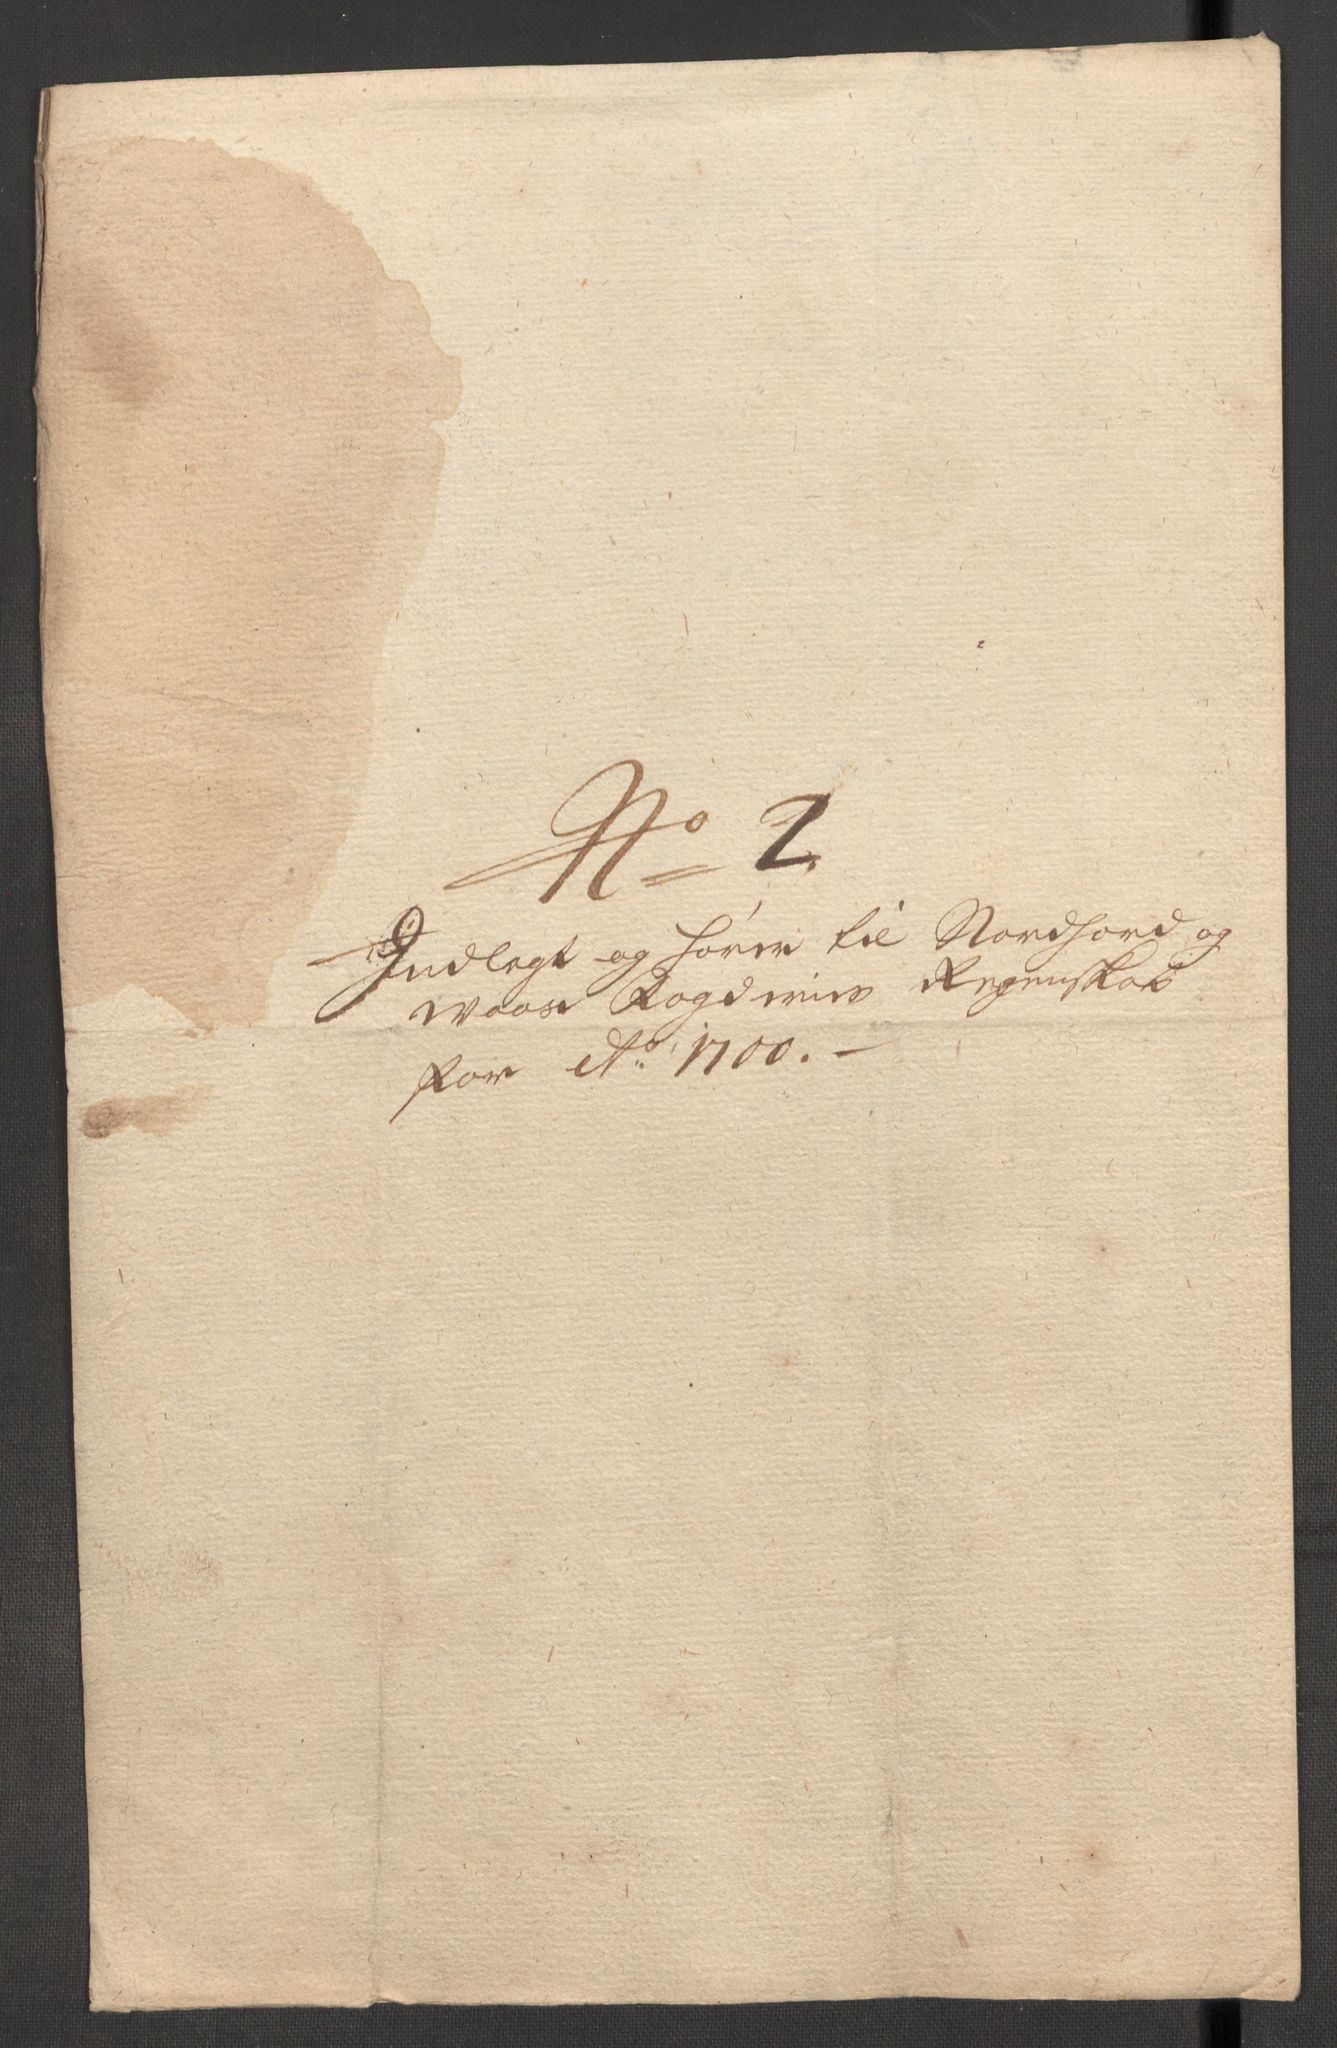 No 2.
Indlegt og hører til Nordhord og
Woos Fogderies Regenskab
for Ao 1700. –